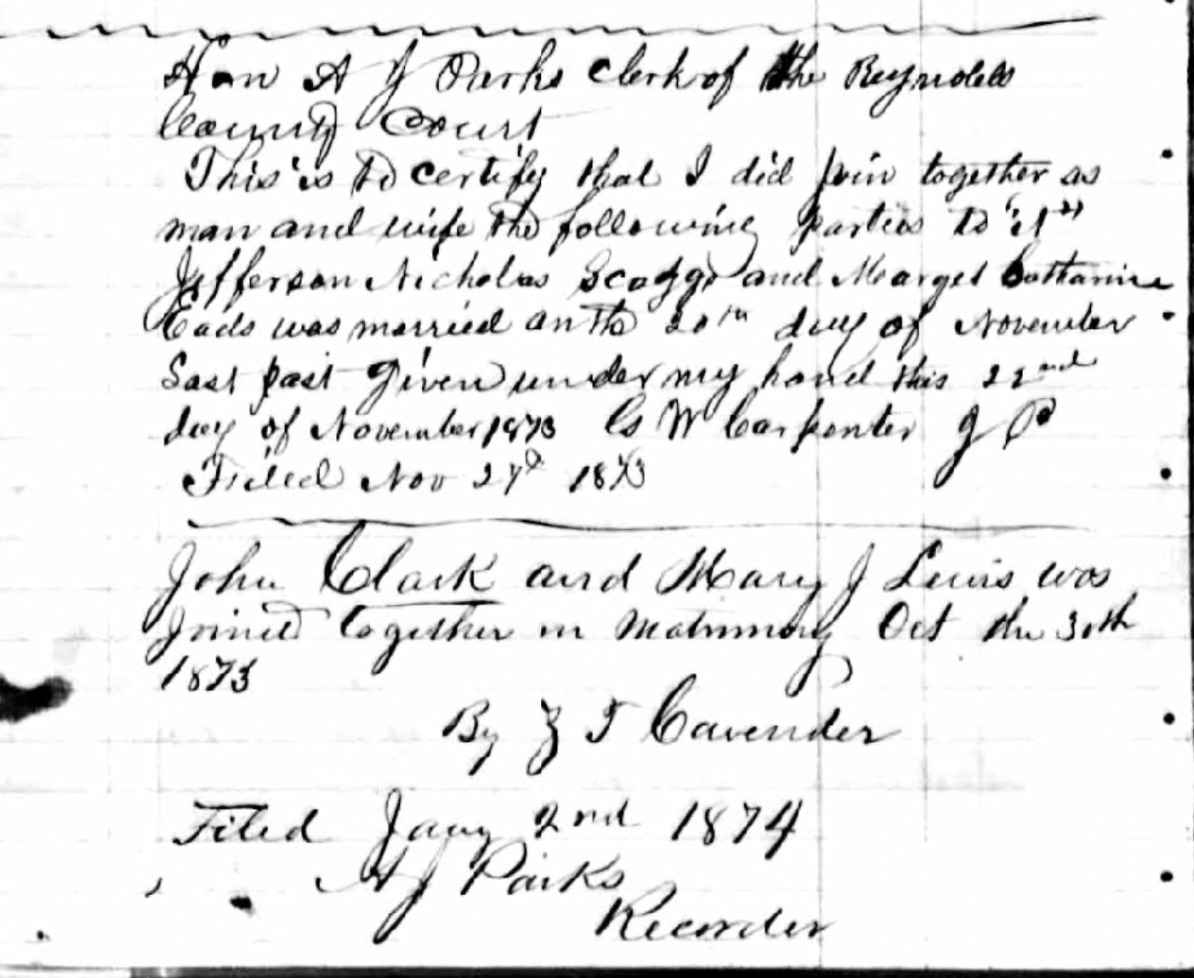 Hon A J Parks Clerk of the Reynolds
County Court
This is to certify that I did join together as
man and wife the following parties to "it"
Jefferson Nicholas Scoggs and Marget Catharine
Eads was married on the 20th day of November
Last past Given under my hand this 22nd
day of November 1873 G W Carpenter J P
Filed Nov 27th 1873
John Clark and Mary J Lewis was
Joined together in Matrimony Oct the 30th
1873
By Z T Cavender
Filed Jany 2nd 1874
A J Parks
Recorder